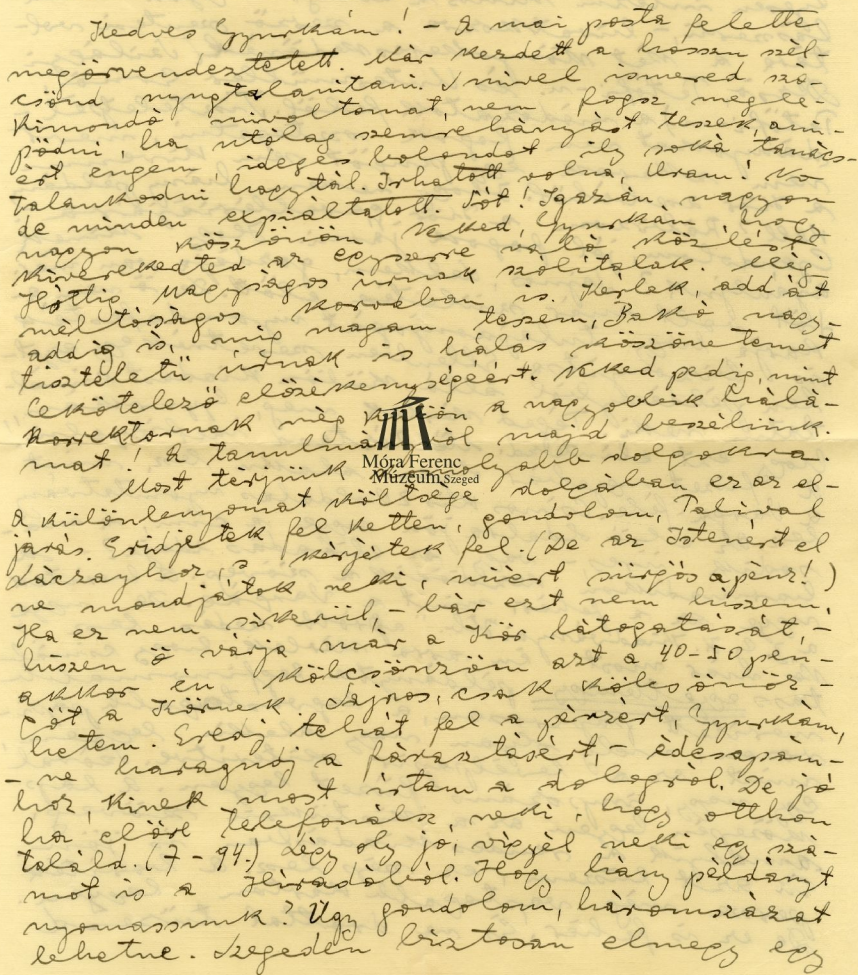 Kedves Gyurkám! – A mai posta felette
megörvendeztetett. Már kezdett a hosszu szél-
csönd nyugtalanitani. S mivel ismered szó-
kimondó mivoltomat, nem fogsz megle-
pődni, ha utólag szemrehányást teszek, ami-
ért engem, ideges bolondot ily soká tanács-
talankodni hagytál. Irhattál volna, Uram! No
de minden expiáltatott. Sőt! Igazán, nagyon
nagyon köszönöm Neked, Gyurkám, hogy
kiverekedted az egyszerre való közlést.
Holtig nagyságos úrnak szólítalak. Még
méltóságos korodban is. Kérlek, add át
addig is, mig magam teszem, Bakó nagy-
tiszteletű úrnak is hálás köszönetemet
lekötelező előzékenységéért. Neked pedig, mint
korrektornak még külön a nagyobbik hálá-
mat! A tanulmányról majd beszélünk.
Most térjünk komolyabb dolgokra.
A különlenyomat költsége dolgában ez az el-
járás. Eridjetek fel ketten, gondolom, Palival
Láczayhoz, s kérjétek fel. (De az Istenért el
ne mondjátok neki, miért sürgős a pénz!)
Ha ez nem sikerül, – bár ezt nem hiszem,
hiszen ő várja már a Kör látogatását, –
akkor én kölcsönzöm azt a 40–50 pen-
gőt a Körnek. Sajnos, csak kölcsönöz-
hetem. Eredj tehát fel a pénzért, Gyurkám,
– ne haragudj a fárasztásért, – édesapám-
hoz, kinek most írtam a dologról. De jó
ha előre telefonálsz neki, hogy otthon
találd. (7–94.) Légy oly jó, vigyél neki egy szá-
mot is a Híradóból. Hogy hány példányt
nyomassunk? Úgy gondolom, háromszázat
lehetne. Szegeden biztosan elmegy egy
Móra Ferenc
Múzeum Szeged